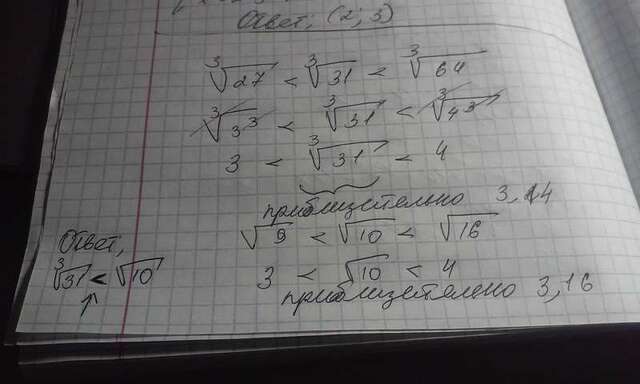 Ответ: (2; 3)
∛27 < ∛31 < ∛64
∛3³ < ∛31 < ∛4³
3 < ∛31 < 4
приблизительно 3,14
√9 < √10 < √16
3 < √10 < 4
приблизительно 3,16
Ответ,
∛31 < √10